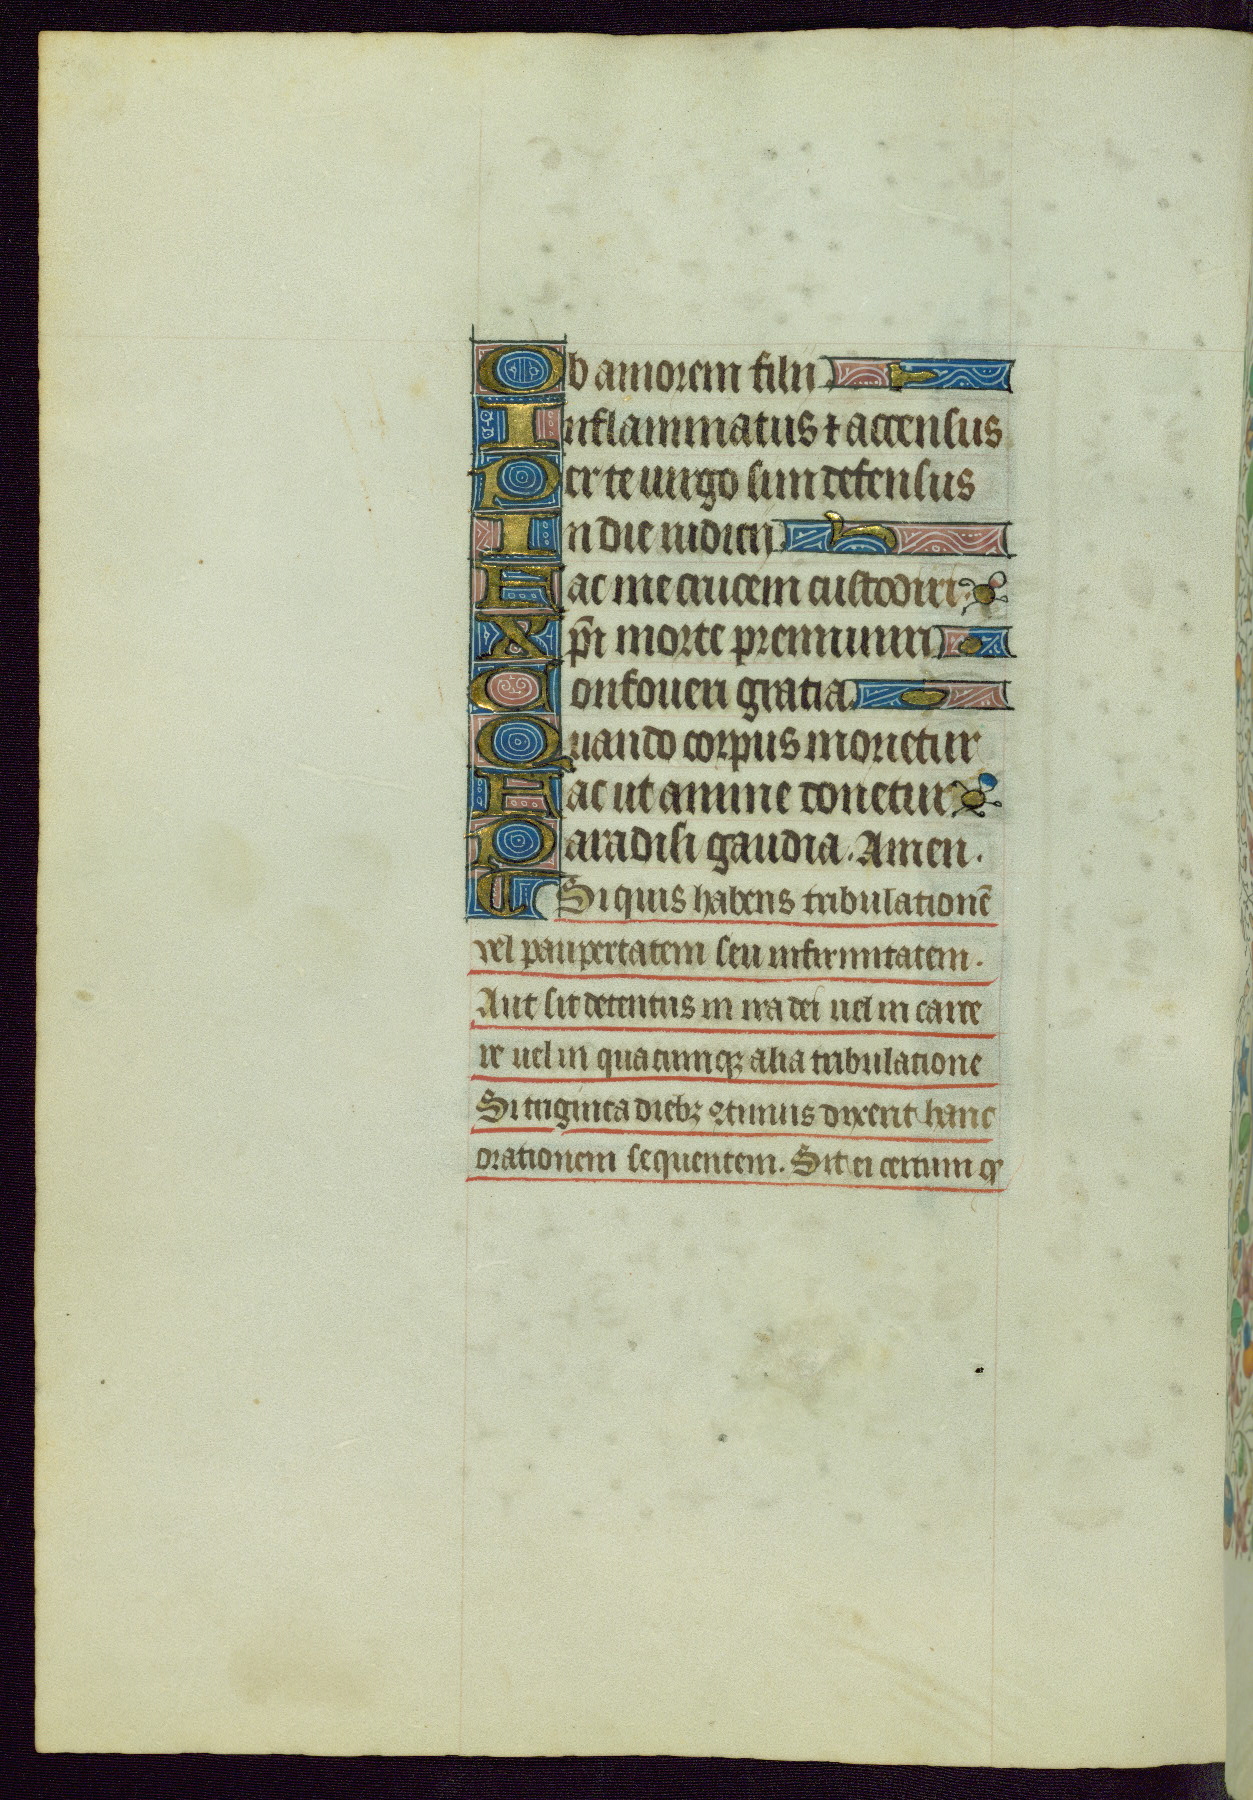 Ob amorem filii
Inflammatus ⁊ accensus
Per te uirgo sim defensus
In die iudicij.
Fac me crucem custodiri.
Xp̄i morte premuniri
Confoueri gratia.
Quando corpus morietur
Fac ut anime donetur.
Paradisi gaudia. Amen.
Si quis habens tribulationē
vel paupertatem seu infirmitatem.
Aut sit detentus in ira dei uel in carce
re uel in quacumqꝫ alia tribulatione
Si triginta diebꝫ ꝯtinuis dixerit hanc
orationem sequentem. Sit ei certum ꝙ